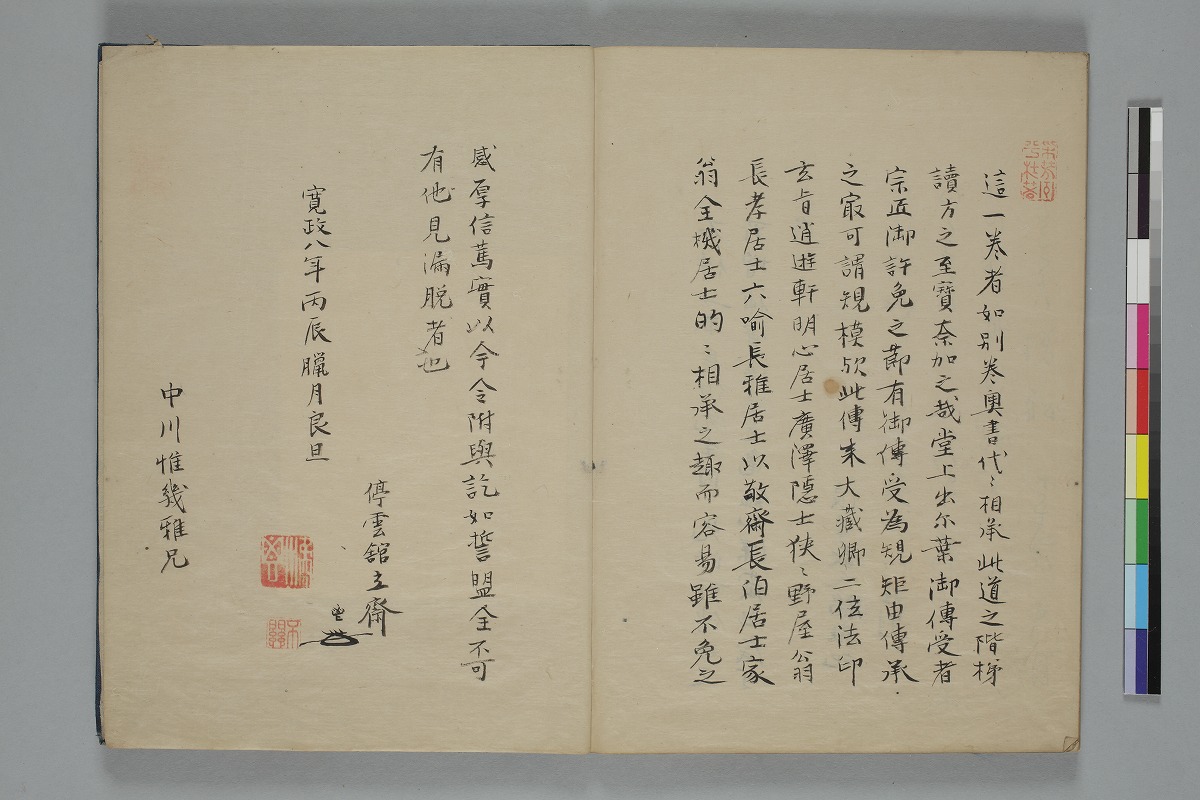 這一巻者如別巻奧書代〻相承此道之階梯
讀方之至寶奈加之哉堂上出尓葉御傳受者
宗匠御許免之節有御傳受為規矩由傳承
之冣可謂規模欤此傳来大藏卿二位法印
玄旨逍遊軒明心居士廣澤隠士狭〻野屋翁
長孝居士六喻長雅居士以敬齋長伯居士家
翁全機居士的〻相承之趣而容易雖不免之
感厚信篤實以今令附與訖如誓盟全不可
有他見漏脱者也
寛政八年丙辰臘月良旦
停雲館立齋
中川惟幾雅兄